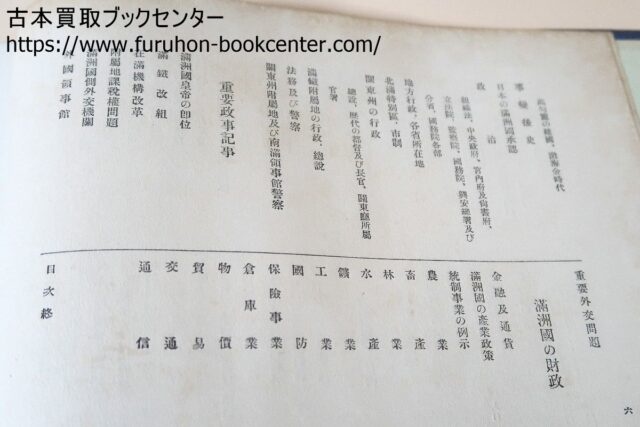 古本買取ブックセンター
https://www.furuhon-bookcenter.com/
高句麗の建國、渤海金時代
事變後史
日本の滿洲國承認
政治
組織法、中央政府、宮內府及尙書府、
立法院、監察院、國務院、興安總署及び
分省、國務院各部
地方行政、各省所在地
北滿特別區、市制
關東州の行政
總說、歷代の都督及び長官、關東廳所屬
官署
滿鐵附屬地の行政、總說
法務及び警察
關東州附屬地及び南滿領事館警察
重要政事記事
滿洲國皇帝の卽位
滿鐵改組
在滿機構改革
附屬地課稅權問題
滿洲國側外交機關
國領事館
重要外交問題
滿洲國の財政
金融及通貨
滿洲國の產業政策
統制事業の例示
農業
畜產
林業
水產
鑛業
工業
國防
保險事業
倉庫業
物價
貿易
交通
通信
目次終
六